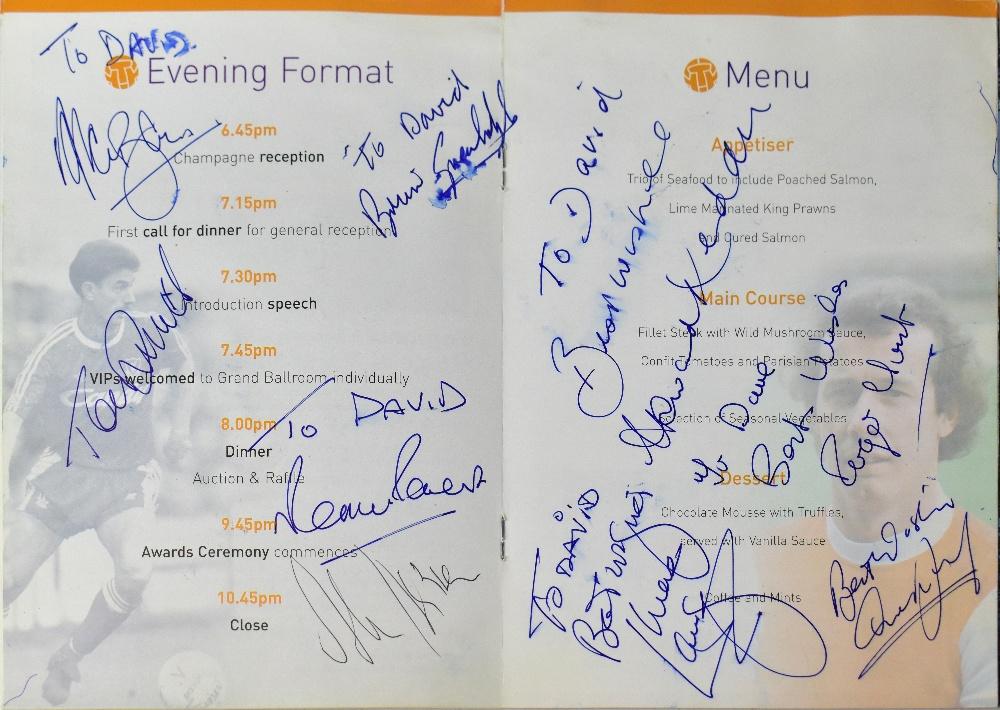 To DAVID
Evening Format
6.45pm
Champagne reception
To David
7.15pm
First call for dinner for general reception
7.30pm
Introduction speech
7.45pm
VIPs welcomed to Grand Ballroom individually
To DAVID
8.00pm
Dinner
Auction & Raffle
9.45pm
Awards Ceremony commences
10.45pm
Close
Menu
To David
Howard Kendall
Appetiser
Trio of Seafood to include Poached Salmon,
Lime Marinated King Prawns
and Cured Salmon
Main Course
Fillet Steak with Wild Mushroom Sauce,
Confit Tomatoes and Parisian Potatoes
Selection of Seasonal Vegetables
To Dave
Best Wishes
Roger Hunt
Dessert
Chocolate Mousse with Truffles,
served with Vanilla Sauce
Coffee and Mints
To DAVID
Best Wishes
Best Wishes